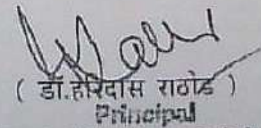 ( डॉ.हरिदास राठोड )
Principal